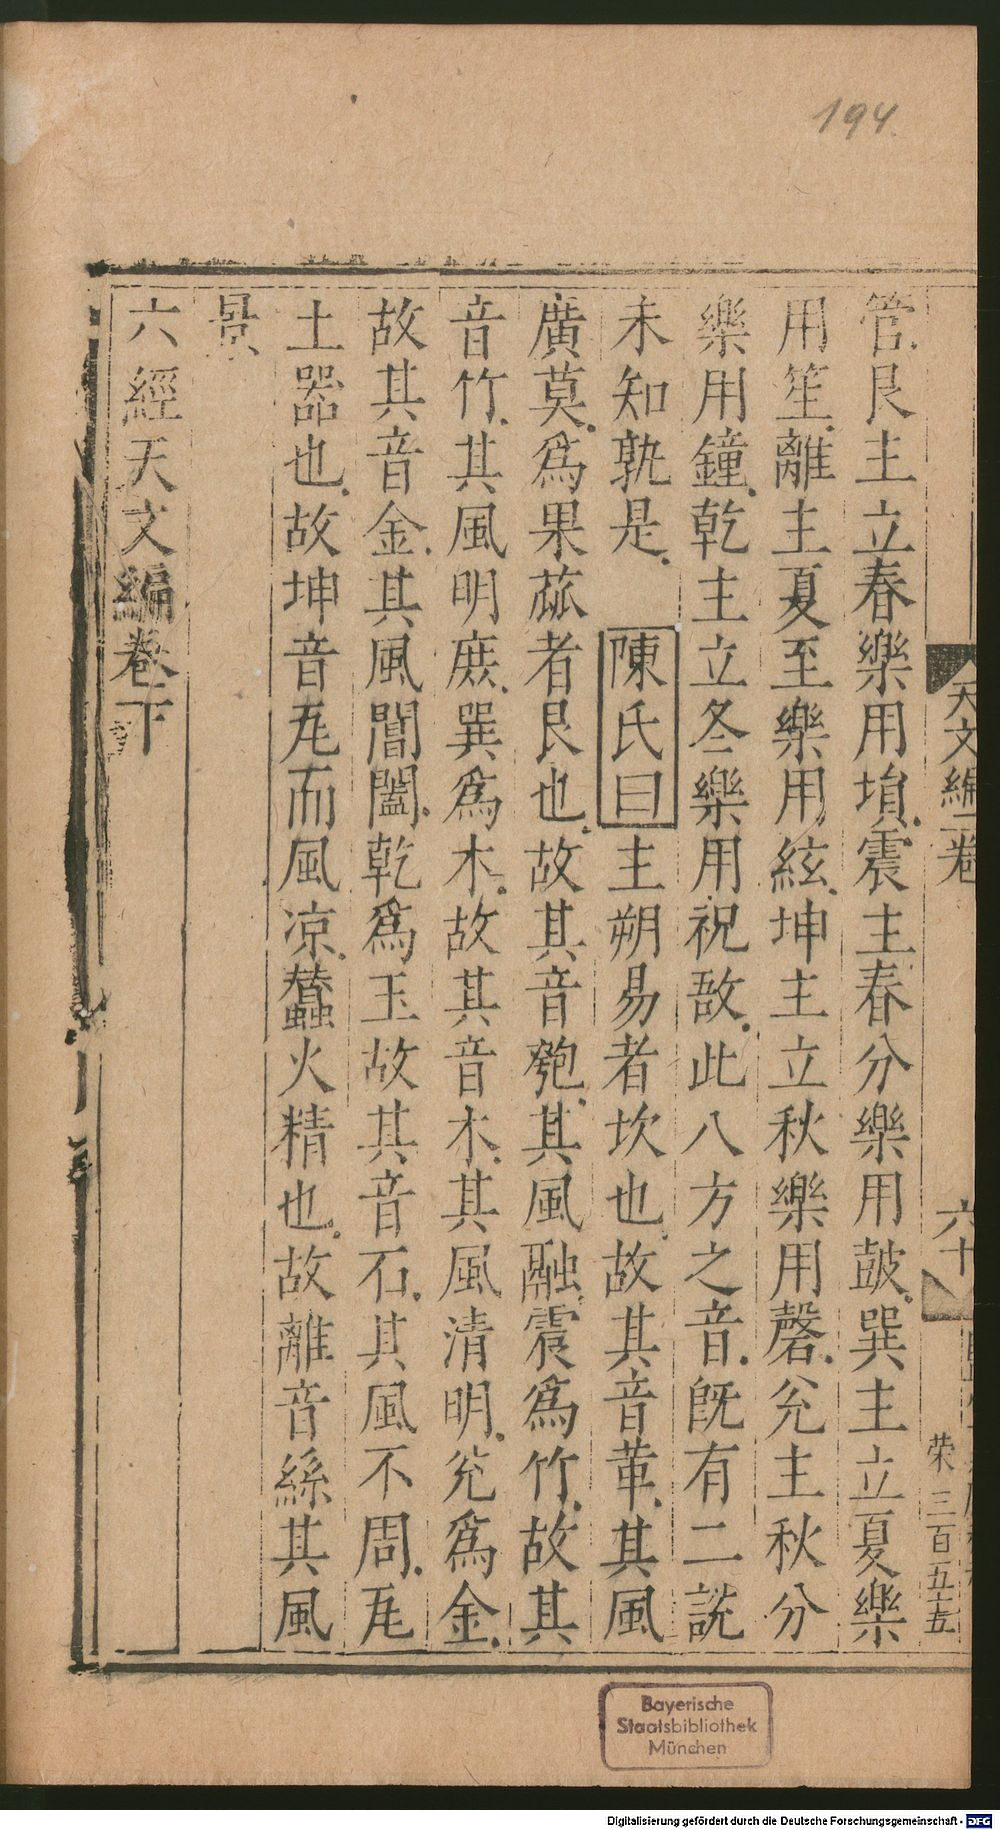 194
天文編二卷
六十
荣 三百五十五
管艮主立春樂用塤震主春分樂用鼓巽主立夏樂
用笙離主夏至樂用絃坤主立秋樂用磬兊主秋分
樂用鐘乾主立冬樂用祝敔此八方之音旣有二說
未知孰是 陳氏曰主朔易者坎也故其音革其風
廣莫爲果蓏者艮也故其音匏其風融震爲竹故其
音竹其風明庶巽爲木故其音木其風清明兊爲金
故其音金其風閶闔乾爲玉故其音石其風不周瓦
土器也故坤音瓦而風凉蠶火精也故離音絲其風
景
六經天文編卷下
Bayerische
Staatsbibliothek
München
Digitalisierung gefördert durch die Deutsche Forschungsgemeinschaft - DFG